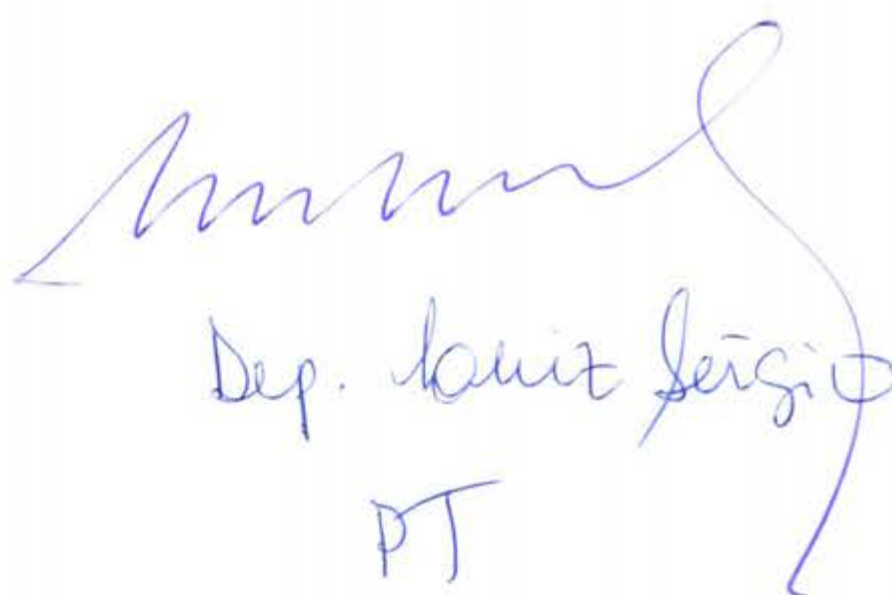 Dep. Luiz Sérgio
PT